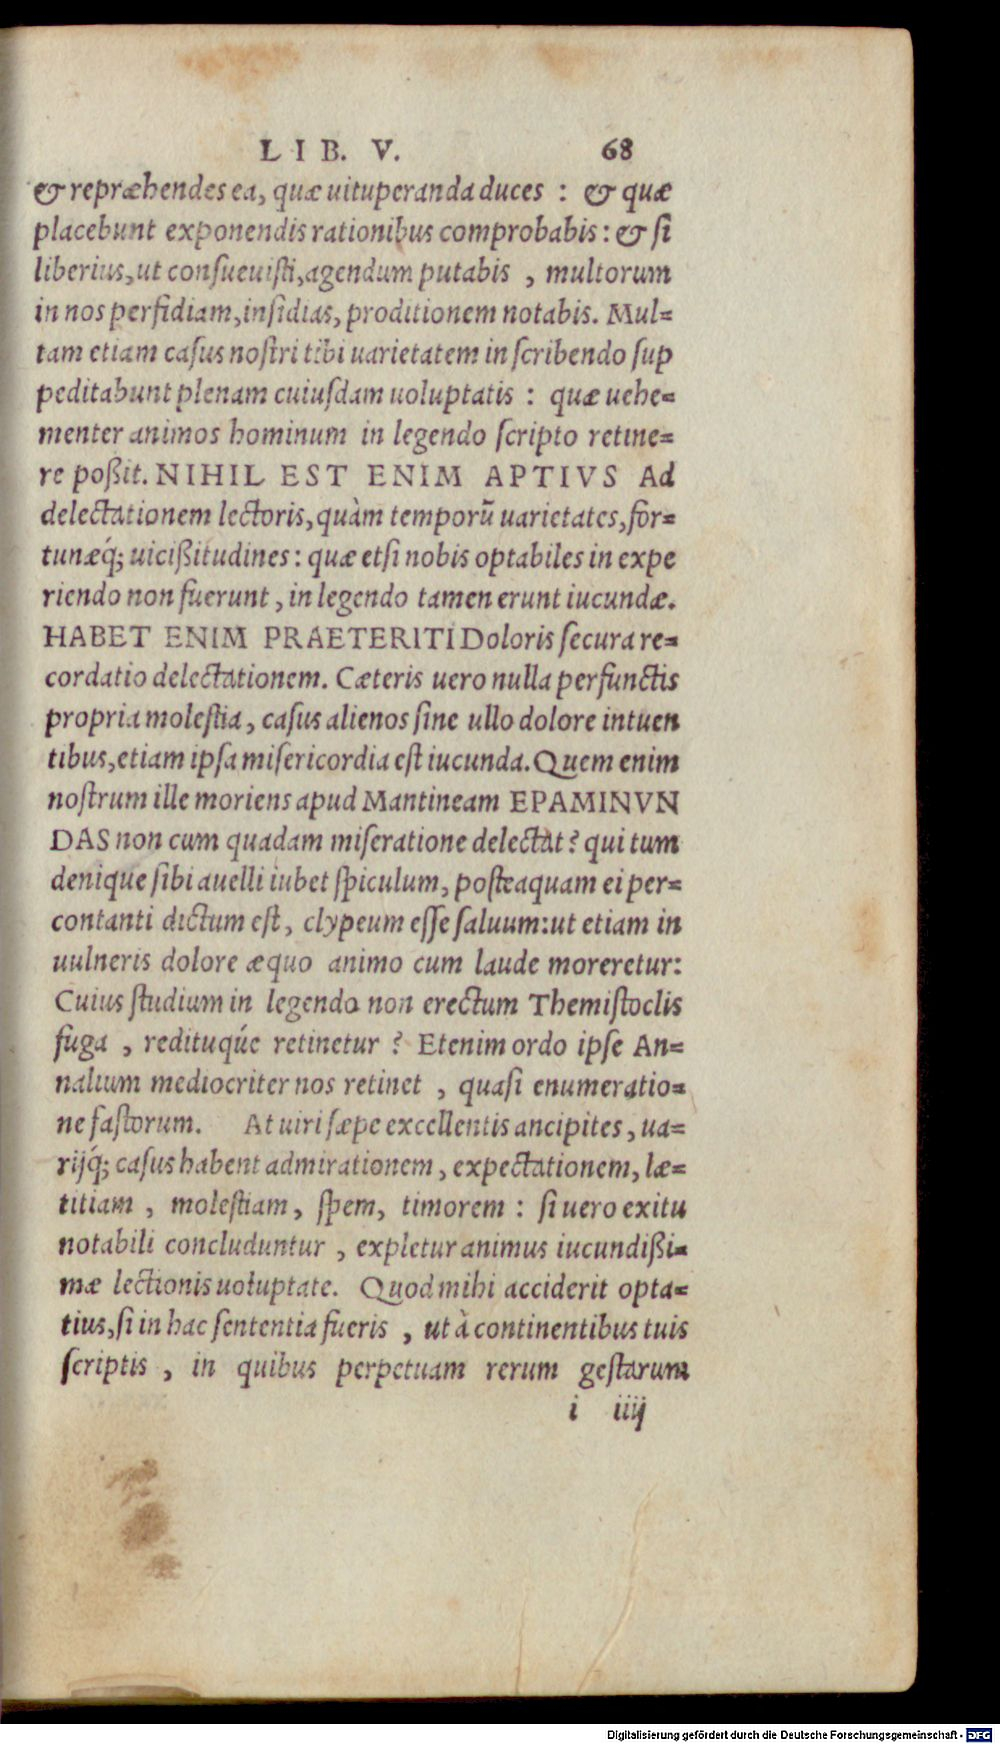 LIB. V. 68
& repræhendes ea, quæ uituperanda duces : & quæ
placebunt exponendis rationibus comprobabis: & ſi
liberius, ut conſueuiſti, agendum putabis , multorum
in nos perfidiam, inſidias, proditionem notabis. Mul=
tam etiam caſus noſtri tibi uarietatem in ſcribendo ſup
peditabunt plenam cuiuſdam uoluptatis : quæ uehe=
menter animos hominum in legendo ſcripto retine=
re poßit. NIHIL EST ENIM APTIVS Ad
delectationem lectoris, quàm temporũ uarietates, for=
tunæq́; uicißitudines: quæ etſi nobis optabiles in expe
riendo non fuerunt , in legendo tamen erunt iucundæ.
HABET ENIM PRAETERITI Doloris ſecura re=
cordatio delectationem. Cæteris uero nulla perfunctis
propria moleſtia, caſus alienos ſine ullo dolore intuen
tibus, etiam ipſa miſericordia eſt iucunda. Quem enim
noſtrum ille moriens apud Mantineam EPAMINVN
DAS non cum quadam miſeratione delectat? qui tum
denique ſibi auelli iubet ſpiculum, poſteaquam ei per=
contanti dictum eſt, clypeum eſſe ſaluum: ut etiam in
uulneris dolore æquo animo cum laude moreretur:
Cuius ſtudium in legendo non erectum Themiſtoclis
fuga , redituqúe retinetur ? Etenim ordo ipſe An=
nalium mediocriter nos retinet , quaſi enumeratio=
ne faſtorum. At uiri ſæpe excellentis ancipites, ua=
rijq́; caſus habent admirationem, expectationem, læ=
titiam , moleſtiam, ſpem, timorem : ſi uero exitu
notabili concluduntur , expletur animus iucundißi=
mæ lectionis uoluptate. Quod mihi acciderit opta=
tius, ſi in hac ſententia fueris , ut à continentibus tuis
ſcriptis , in quibus perpetuam rerum geſtarum
i iiij
Digitalisierung gefördert durch die Deutsche Forschungsgemeinschaft - DFG